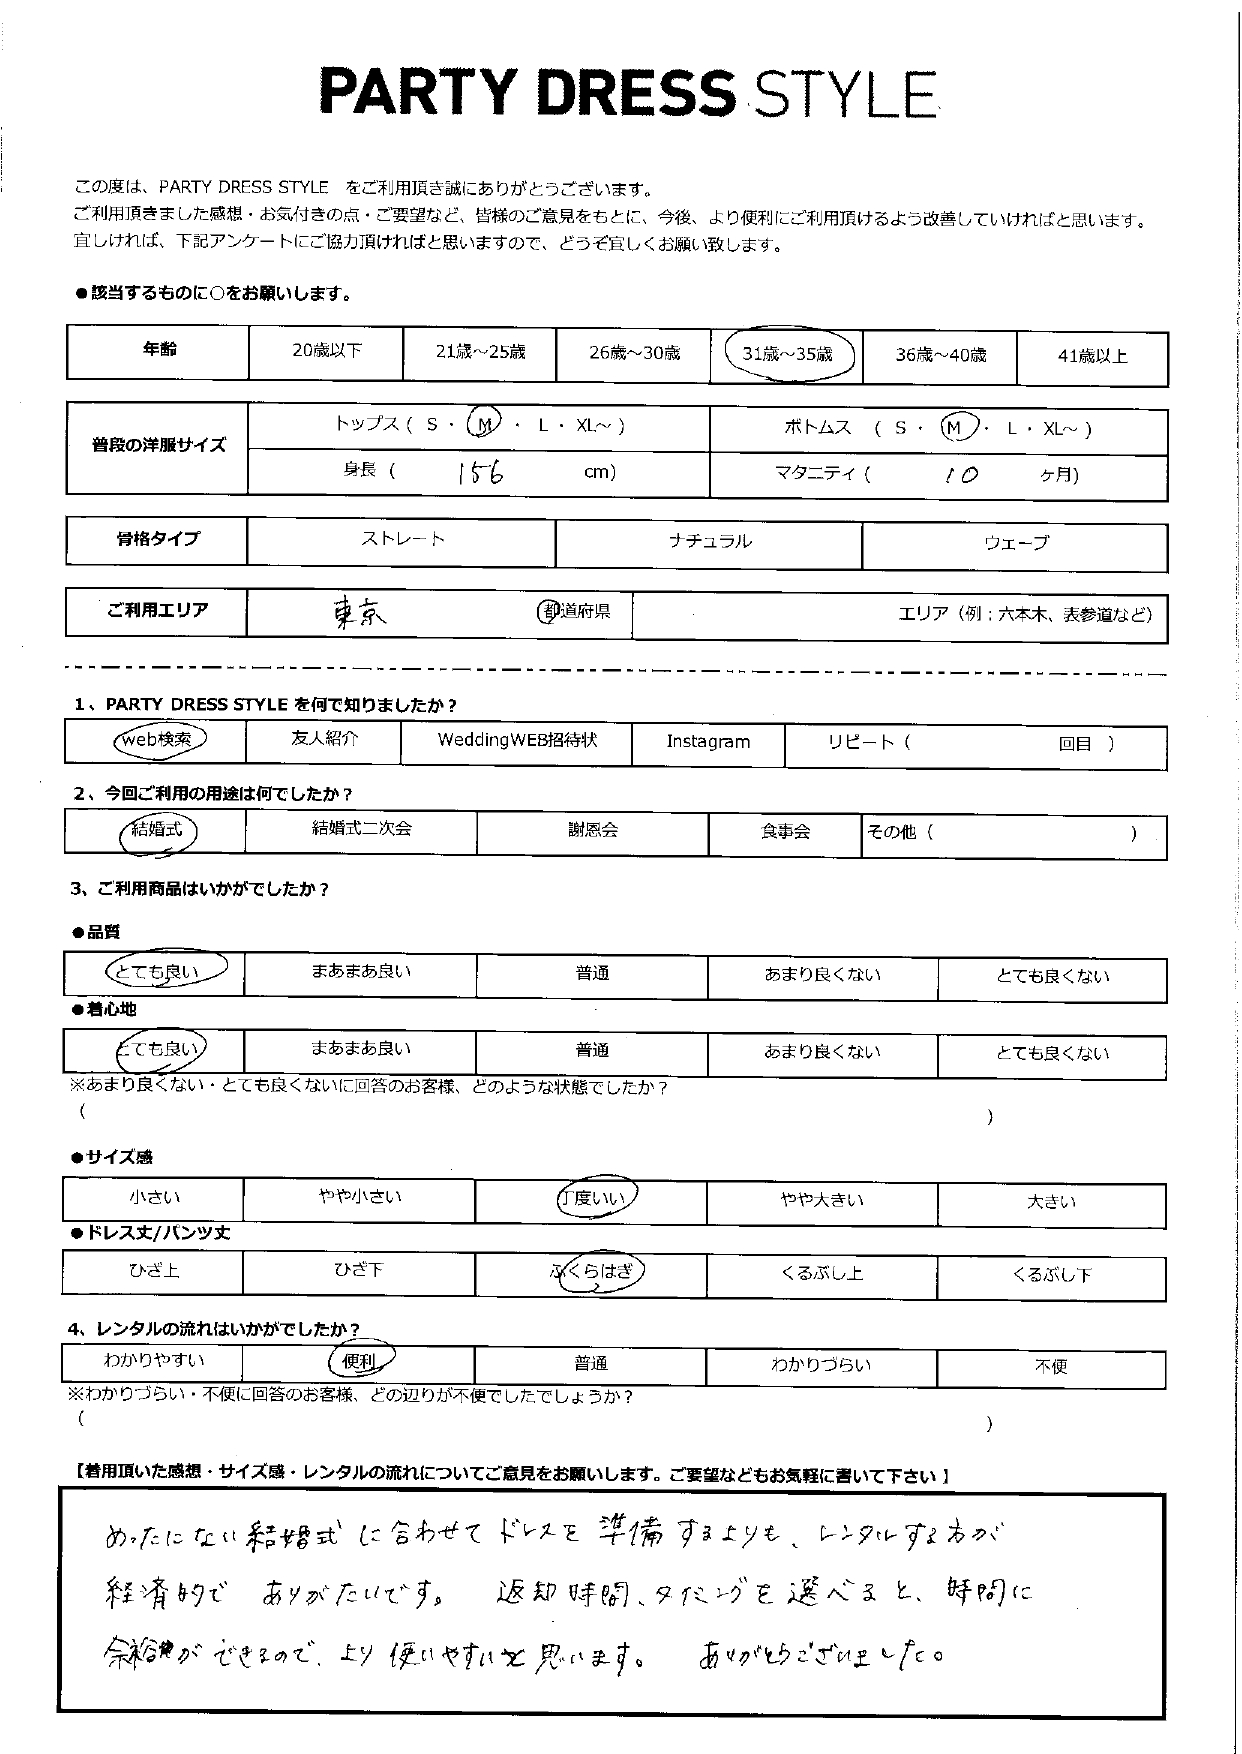 PARTY DRESS STYLE
この度は、PARTY DRESS STYLE をご利用頂き誠にありがとうございます。
ご利用頂きました感想・お気付きの点・ご要望など、皆様のご意見をもとに、今後、より便利にご利用頂けるよう改善していければと思います。
宜しければ、下記アンケートにご協力頂ければと思いますので、どうぞ宜しくお願い致します。
●該当するものに○をお願いします。
年齢 20歳以下 21歳～25歳 26歳～30歳 31歳～35歳 36歳～40歳 41歳以上
普段の洋服サイズ トップス ( S ・ M ・ L ・ XL～ ) ボトムス ( S ・ M ・ L ・ XL～ )
身長 ( 156 cm) マタニティ ( 10 ヶ月)
骨格タイプ ストレート ナチュラル ウェーブ
ご利用エリア 東京 都道府県 エリア（例；六本木、表参道など）
1、PARTY DRESS STYLE を何で知りましたか？
web検索 友人紹介 WeddingWEB招待状 Instagram リピート ( 回目 )
2、今回ご利用の用途は何でしたか？
結婚式 結婚式二次会 謝恩会 食事会 その他 ( )
3、ご利用商品はいかがでしたか？
●品質
とても良い まあまあ良い 普通 あまり良くない とても良くない
●着心地
とても良い まあまあ良い 普通 あまり良くない とても良くない
※あまり良くない・とても良くないに回答のお客様、どのような状態でしたか？
( )
●サイズ感
小さい やや小さい 丁度いい やや大きい 大きい
●ドレス丈/パンツ丈
ひざ上 ひざ下 ふくらはぎ くるぶし上 くるぶし下
4、レンタルの流れはいかがでしたか？
わかりやすい 便利 普通 わかりづらい 不便
※わかりづらい・不便に回答のお客様、どの辺りが不便でしたでしょうか？
( )
【着用頂いた感想・サイズ感・レンタルの流れについてご意見をお願いします。ご要望などもお気軽に書いて下さい】
めったにない結婚式に合わせてドレスを準備するよりも、レンタルする方が
経済的でありがたいです。 返却時間、タイミングを選べると、時間に
余裕ができるので、より使いやすいと思います。 ありがとうございました。